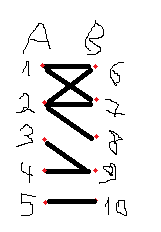 A B
1 6
2 7
3 8
4 9
5 10